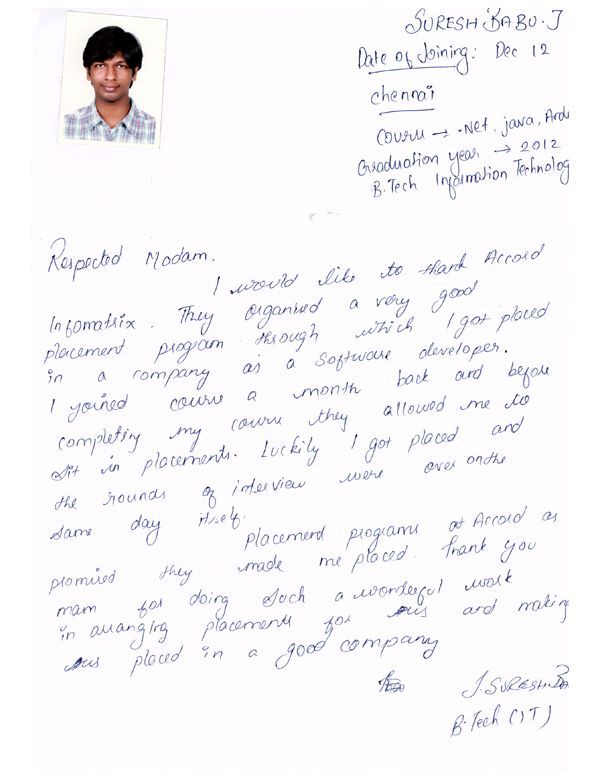 SURESH BABU. J
Date of Joining: Dec 12
Chennai
Course → .Net, java, And
Graduation year → 2012
B.Tech Information Technolog
Respected Madam.
I would like to thank Accord
Infomatrix. They organised a very good
placement program through which I got placed
in a company as a Software developer.
I joined course a month back and before
completing my course they allowed me to
sit in placements. Luckily I got placed and
the rounds of interview were over on the
same day itself.
Placement programs at Accord as
promised they made me placed. Thank you
mam for doing such a wonderful work
in arranging placements for us and making
us placed in a good company
J. SURESH BA
B.Tech (IT)